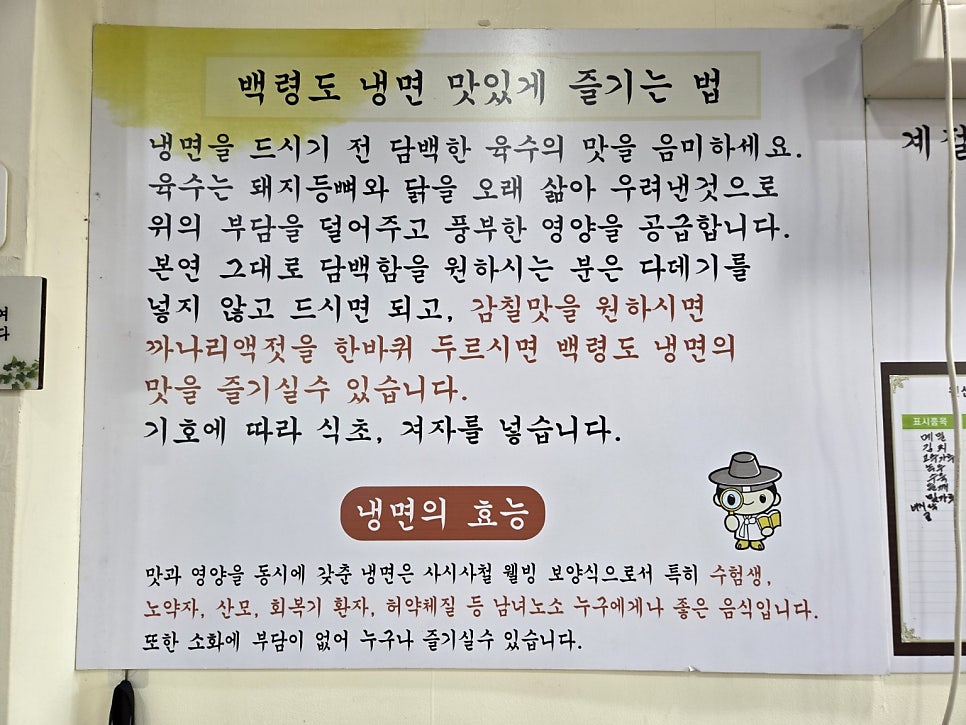 백령도 냉면 맛있게 즐기는 법
냉면을 드시기 전 담백한 육수의 맛을 음미하세요.
육수는 돼지등뼈와 닭을 오래 삶아 우려낸것으로
위의 부담을 덜어주고 풍부한 영양을 공급합니다.
본연 그대로 담백함을 원하시는 분은 다데기를
넣지 않고 드시면 되고, 감칠맛을 원하시면
까나리액젓을 한바퀴 두르시면 백령도 냉면의
맛을 즐기실수 있습니다.
기호에 따라 식초, 겨자를 넣습니다.
냉면의 효능
맛과 영양을 동시에 갖춘 냉면은 사시사철 웰빙 보양식으로서 특히 수험생,
노약자, 산모, 회복기 환자, 허약체질 등 남녀노소 누구에게나 좋은 음식입니다.
또한 소화에 부담이 없어 누구나 즐기실수 있습니다.
여
다
계절
표시품목
메밀
김치
고추가루
육우
수육